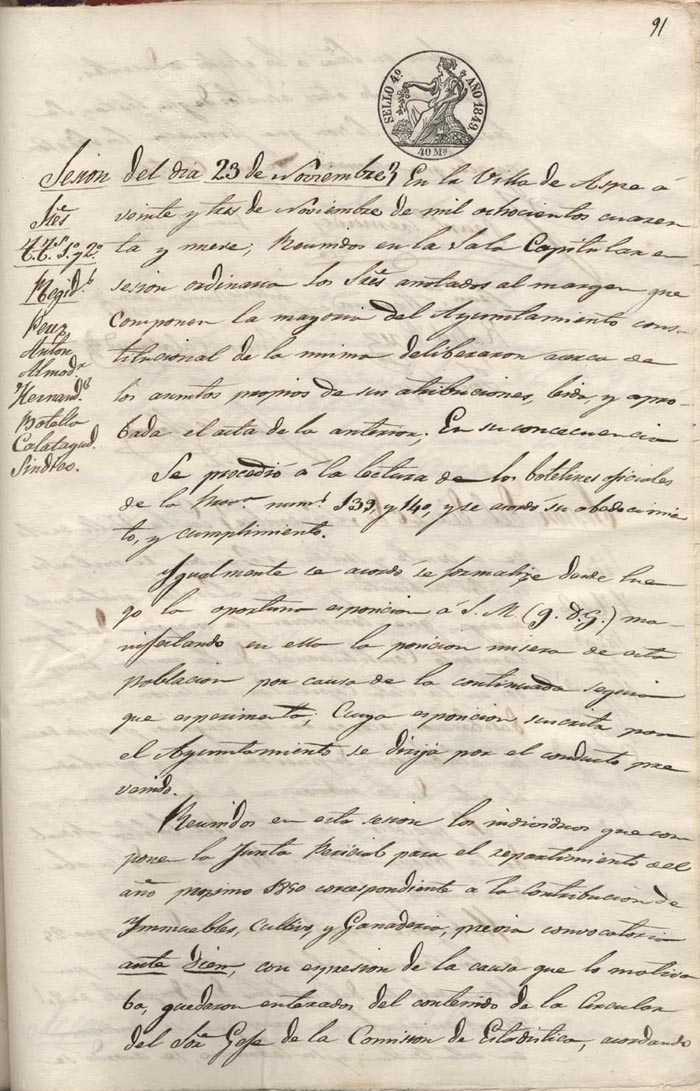 91
SELLO 4º AÑO 1849.
40 Ms
Sesion del dia 23 de Noviembre, En la Villa de Aspe á
veinte y tres de Noviembre de mil ochocientos cuaren
ta y nueve; Reunidos en la Sala Capitular en
sesion ordinaria los Sres anotados al margen que
componen la mayoria del Ayuntamiento cons-
titucional de la misma deliberaron acerca de
los asuntos propios de sus atribuciones, leida, y apro-
bada el acta de la anterior. En su concecuencia
Sres
T.T.s 1º y 2º
Regid.s
Perez
Anton
Almodr
Hernandz
Botella
Calatayud.
Sindico.
Se procedió á la lectura de los boletines oficiales
de la Prova nums 139, y 140, y se acordó su obedecimien
to, y cumplimiento.
Ygualmente se acordó se formalize desde lue
go la oportuna esposicion á S. M. (q. D. G.) ma-
nifestando en ella la posicion misera de esta
poblacion por causa de la continuada sequia
que esperimenta; Cuya esposicion suscrita por
el Ayuntamiento se dirija por el conducto pre
venido.
Reunidos en esta sesion los individuos que com
ponen la Junta Pericial para el repartimiento del
año proximo 1850 correspondiente á la Contribucion de
Ymmuebles, Cultivo, y Ganaderia, previa convocatoria
ante Diem, con espresion de la causa que lo motiva
ba, quedaron enterados del contenido de la Circular
del Sor Gefe de la Comision de Estadistica, acordando